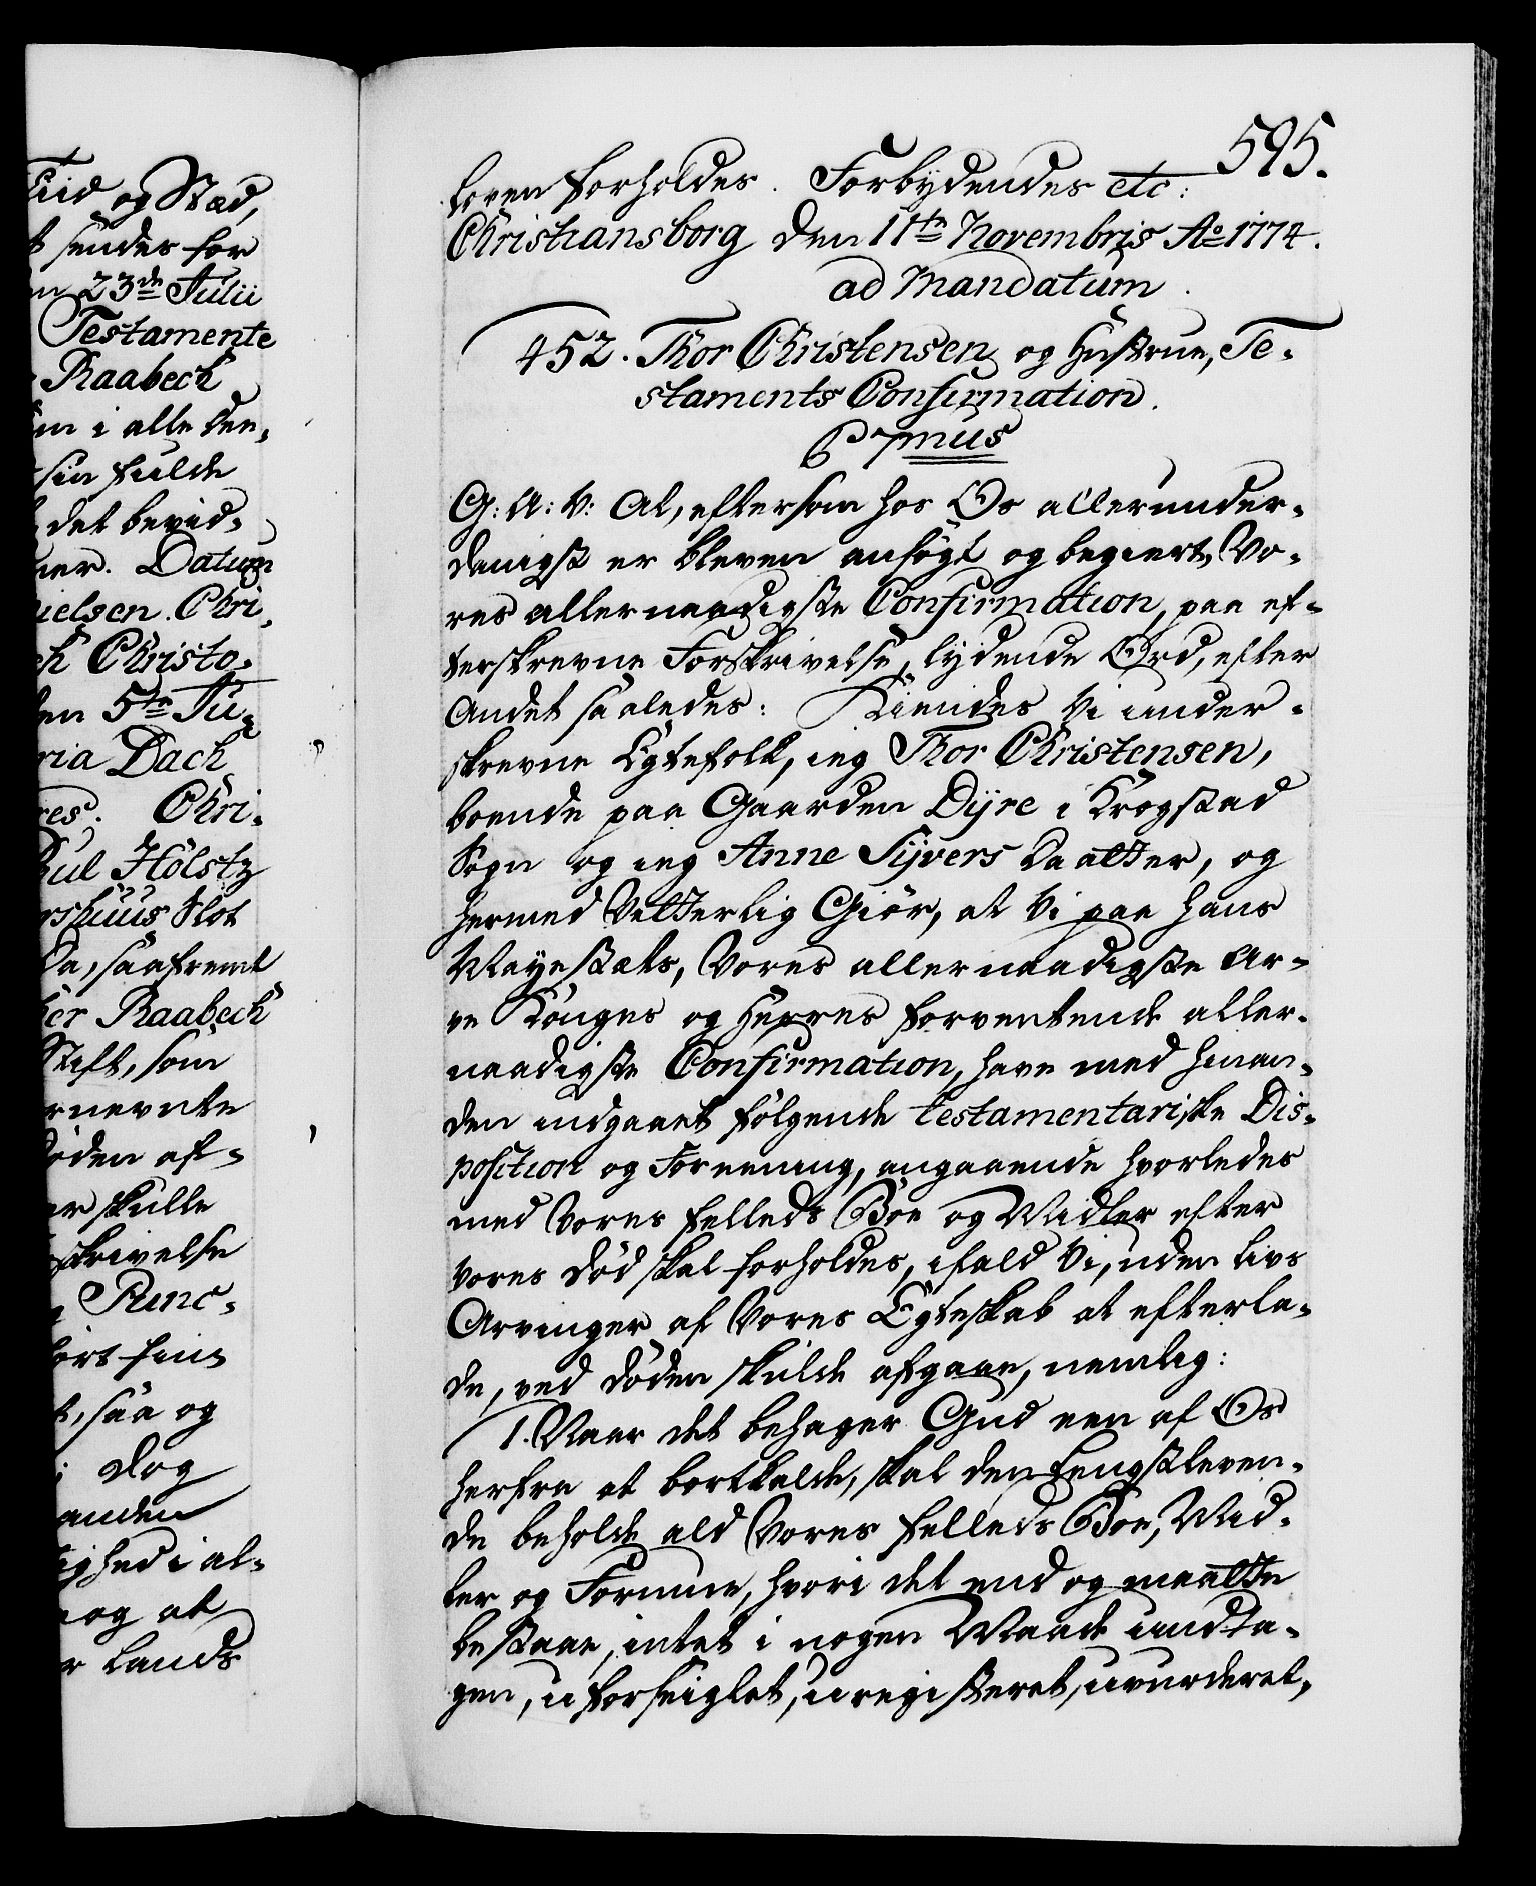 Tiid og Stæd,
sendes for
23de Julii
Testamente
Raabech
i alle dee,
sin fulde
det bevid-
ner. Datum
Nielsen. Chri,
Christo-
den 5te Ju-
ria Dach
res. Chri-
Poul Holstz
rshuus Slot
Da, saafremt
Raabech
Stift, som
ernevnte
døden af-
skulle
skrivelse
Punc-
hørt sine
t, saa og
dog
anden
ighed i al-
og at
Lands
595.
Loven forholdes. Forbydendes etc:
Christiansborg den 11te Novembris Ao 1774.
ad Mandatum.
452. Thor Christensen og Hustrue, Te-
staments Confirmation.
C 7mus
G: A: V: At, eftersom hos Os allerunder-
danigst er bleven ansøgt og begiert Vo-
res allernaadigste Confirmation, paa ef-
terskrevne Forskrivelse, lydende Ord, efter
Andet saaledes: Kiendes Vi under-
skrevne Egtefolk, ieg Thor Christensen,
boende paa Gaarden Dyre i Krogstad
Sogn og ieg Anne Syvers Daatter, og
hermed Vitterlig Giør, at Vi paa Hans
Mayestæts, Vores allernaadigste Ar-
ve Konges og Herres forventende aller-
naadigste Confirmation, have med hinan-
den indgaaet følgende testamentariske Dis-
position og Foreening, angaaende hvorledes
med Vores fælleds Boe og Midler efter
Vores Død skal forholdes, ifald Vi, uden Livs
Arvinger af Vores Egteskab at efterla-
de, ved Døden skulde afgaae, nemlig:
1. Naar det behager Gud een af Os
herfra at bortkalde, skal den Lengstleven-
de beholde ald Vores fælleds Boe, Mid-
ler og Formue, hvori det end og maatte
bestaae, intet i nogen Maade undta-
gen, uforseiglet, uregisteret, uvurderet,